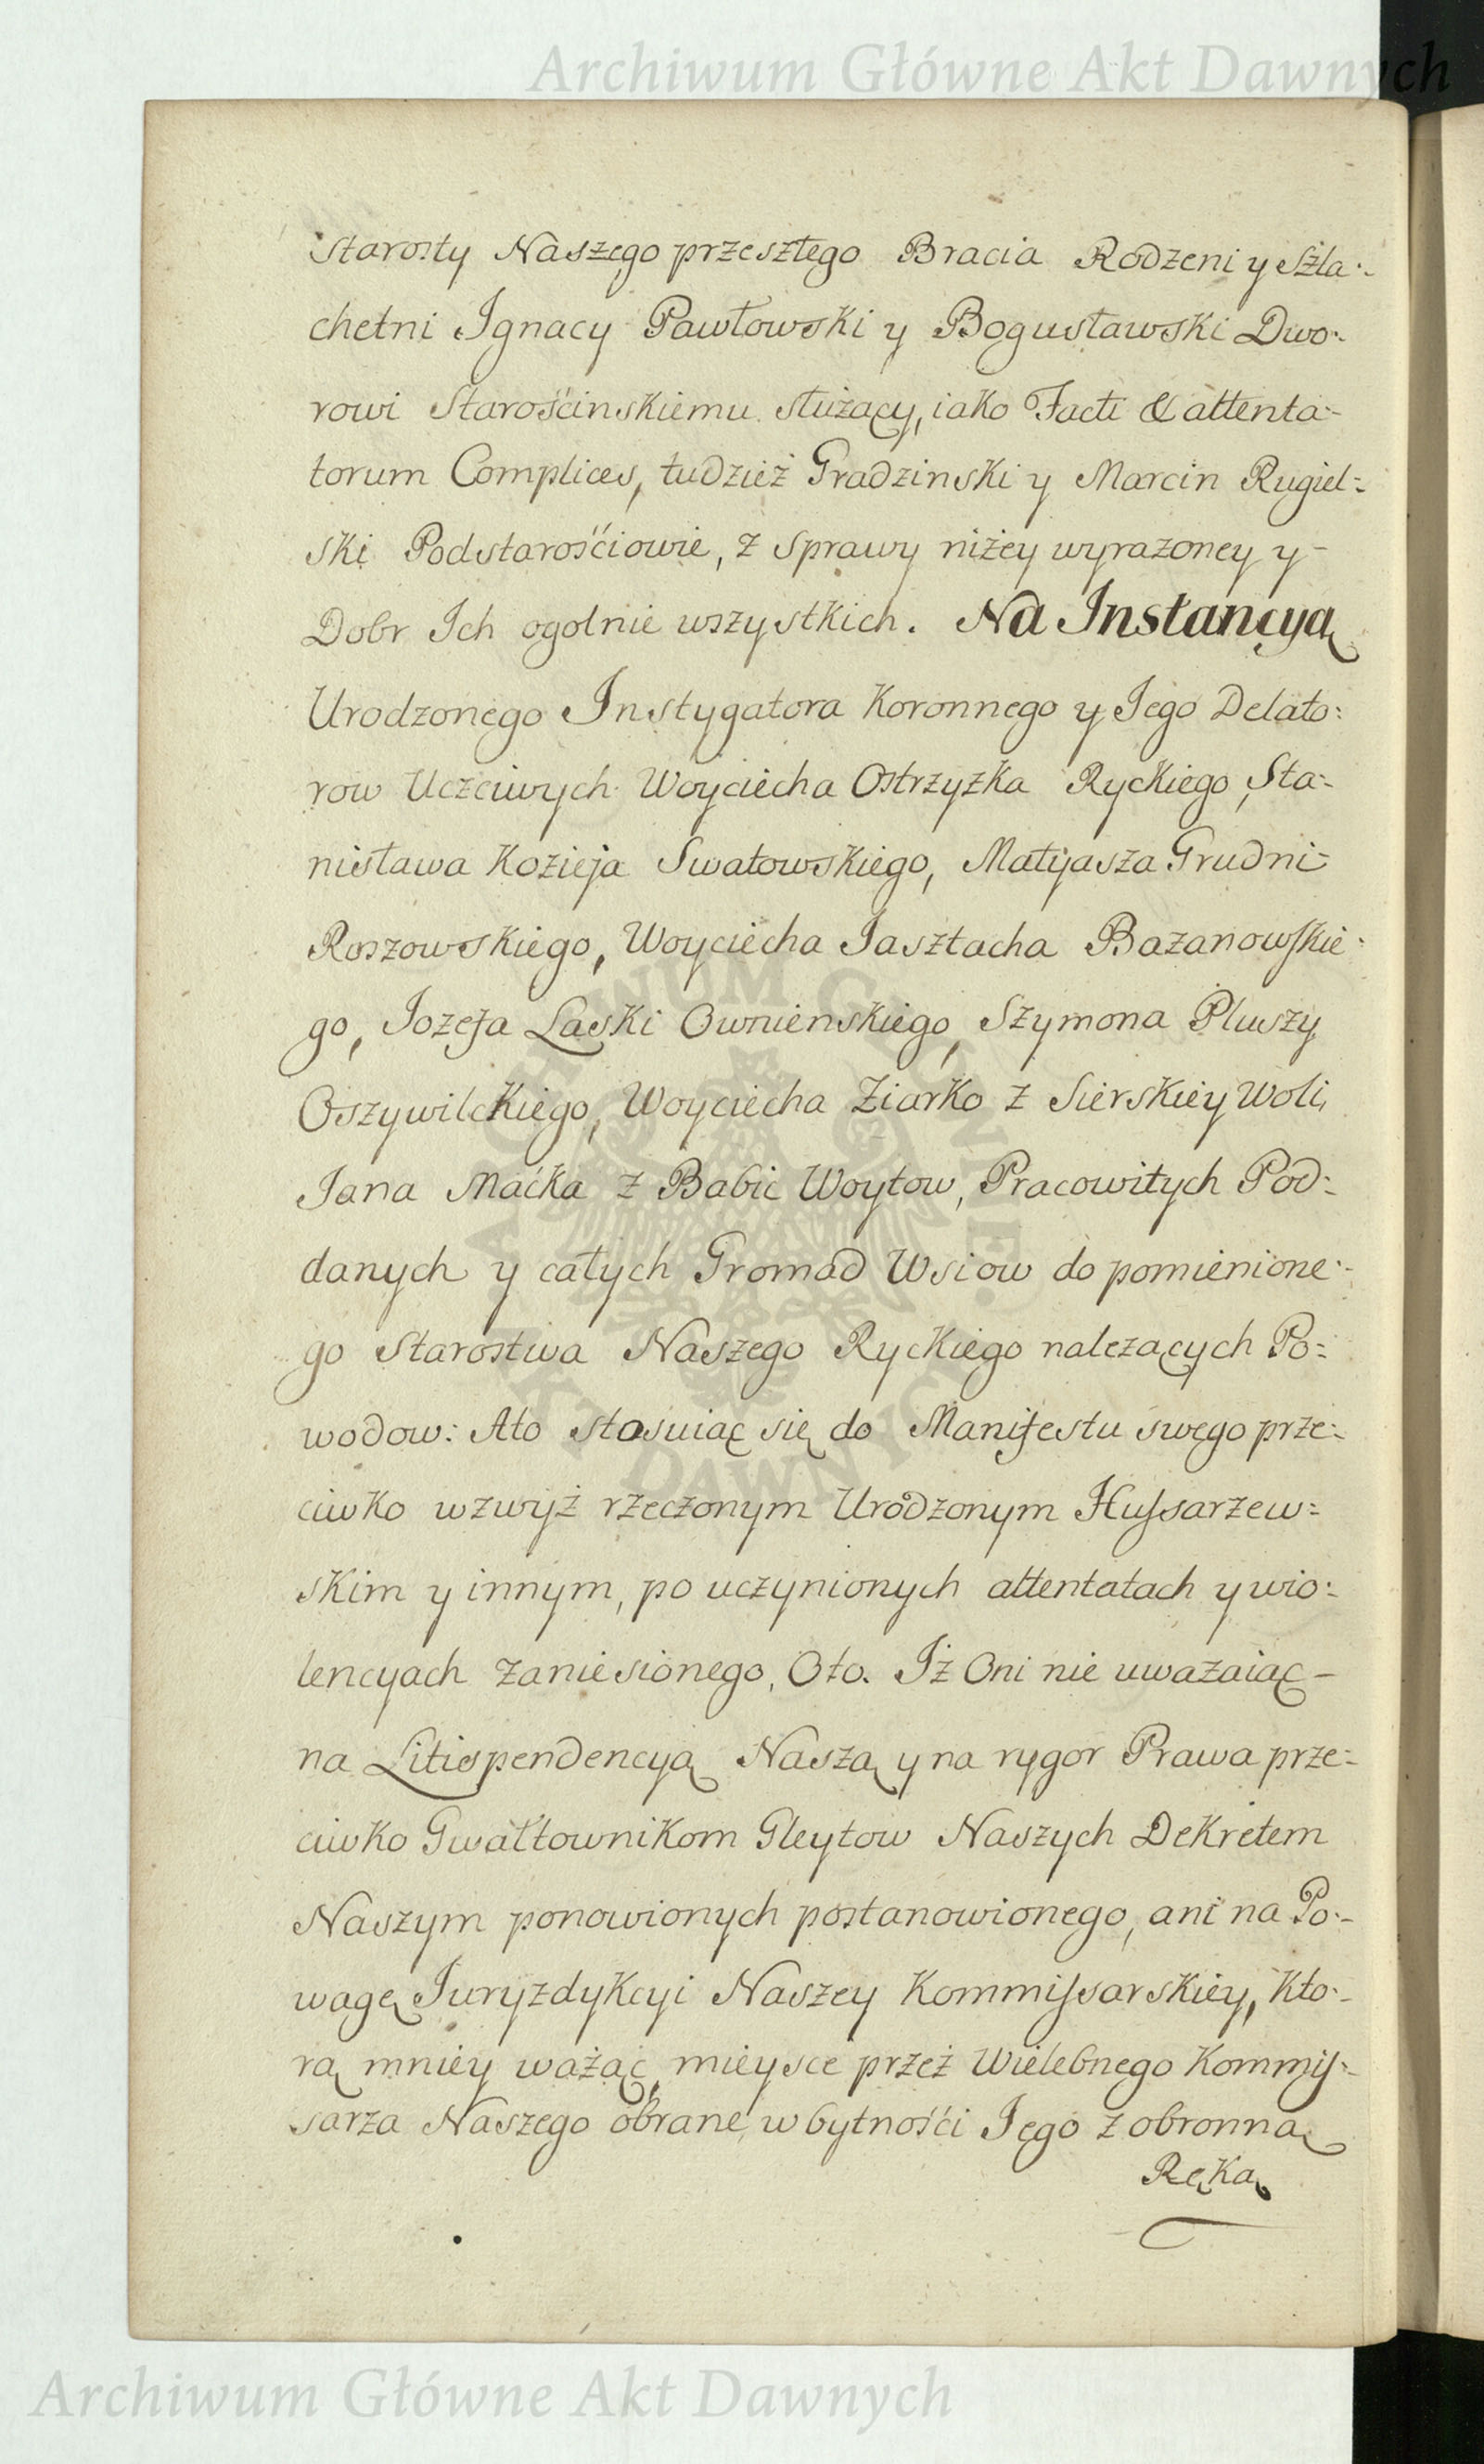 Archiwum Główne Akt Dawnych
Starosty Naszego przeszłego Bracia Rodzeni y Szla:
chetni Ignacy Pawłowski y Bogusławski Dwo:
rowi Starośćinskiemu służący, iako Facti & attenta:
torum Complices, tudzież Gradzinski y Marcin Rugiel:
ski Podstarośćiowie, z Sprawy niżey wyrazoney y
Dobr Ich ogolnie wszystkich. Na Instancyą
Urodzonego Instygatora Koronnego y Jego Delato:
row Uczciwych Woyciecha Ostrzyzka Ryckiego, Sta:
nisława Kozieja Swatowskiego, Matyjasza Grudni
Roszowskiego, Woyciecha Jasztacha Bazanowskie:
go, Jozefa Laski Ownienskiego, Szymona Pluszy
Oszywilckiego, Woyciecha Ziarko z Sierskiey Woli,
Jana Maćka z Babic Woytow, Pracowitych Pod:
danych y całych Gromad Wsiow do pomienione:
go Starostwa Naszego Ryckiego nalezących Po:
wodow: Ato stosuiąc się do Manifestu swego prze:
ciwko wzwyż rzeczonym Urodzonym Hussarzew:
skim y innym, po uczynionych attentatach y wio:
lencyach zaniesionego, Oto. Iż Oni nie uwazaiąc
na Litispendencyą Naszą y na rygor Prawa prze:
ciwko Gwałtownikom Gleytow Naszych Dekretem
Naszym ponowionych postanowionego, ani na Po:
wagę Juryzdykcyi Naszey Kommissarskiey, Kto:
rą mniey ważąc, mieysce przeż Wielebnego Kommis:
sarza Naszego obrane, w bytnośći Jego z obronną
Ręką
ARCHIWUM GŁÓWNE AKT DAWNYCH
Archiwum Główne Akt Dawnych